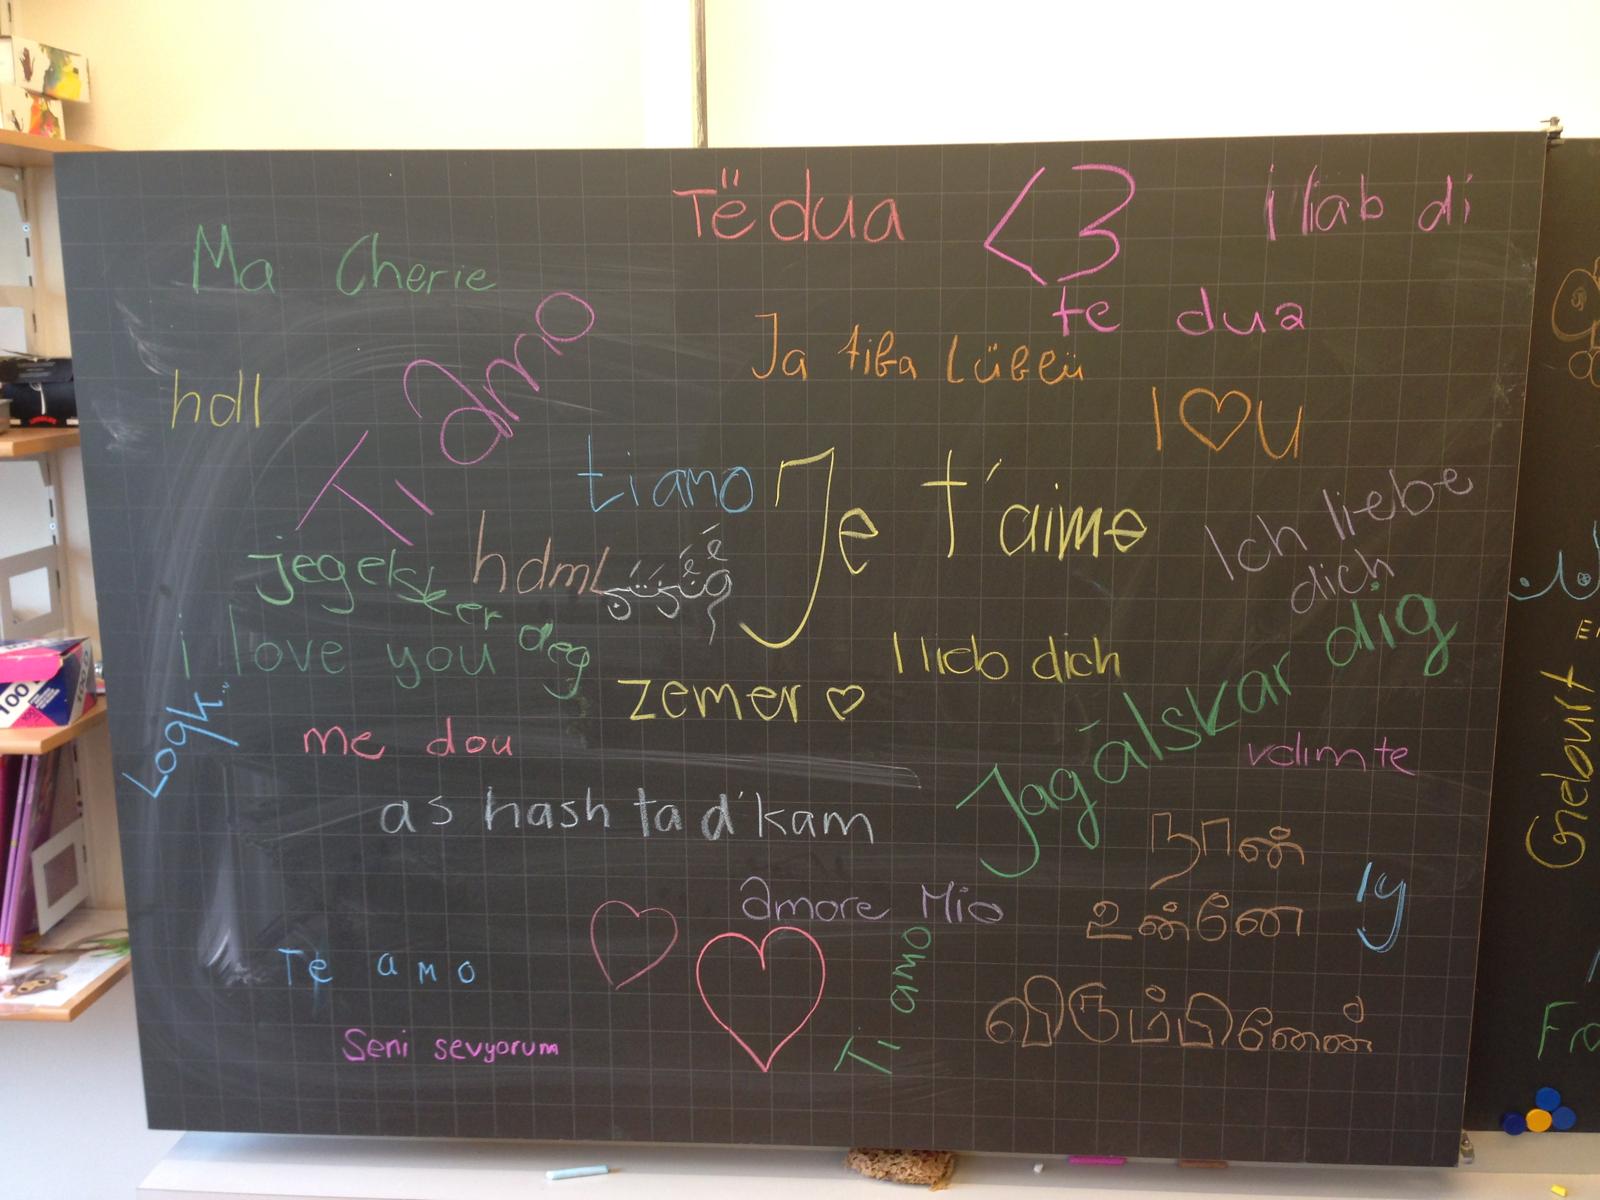 Të dua
<3
i liab di
Ma Cherie
te dua
Ja tiba Lüblü
hdl
Ti Amo
I ♡ u
ti amo
Je t'aime
Ich liebe
dich
hdml
jeg elsker deg
i love you
I lieb dich
zemer ♡
Jag älskar dig
me dou
volim te
as hash ta d'kam
நான்
உன்னை
விரும்பினேன்
ly
amore Mio
Te amo
Ti amo
Seni sevyorum
100